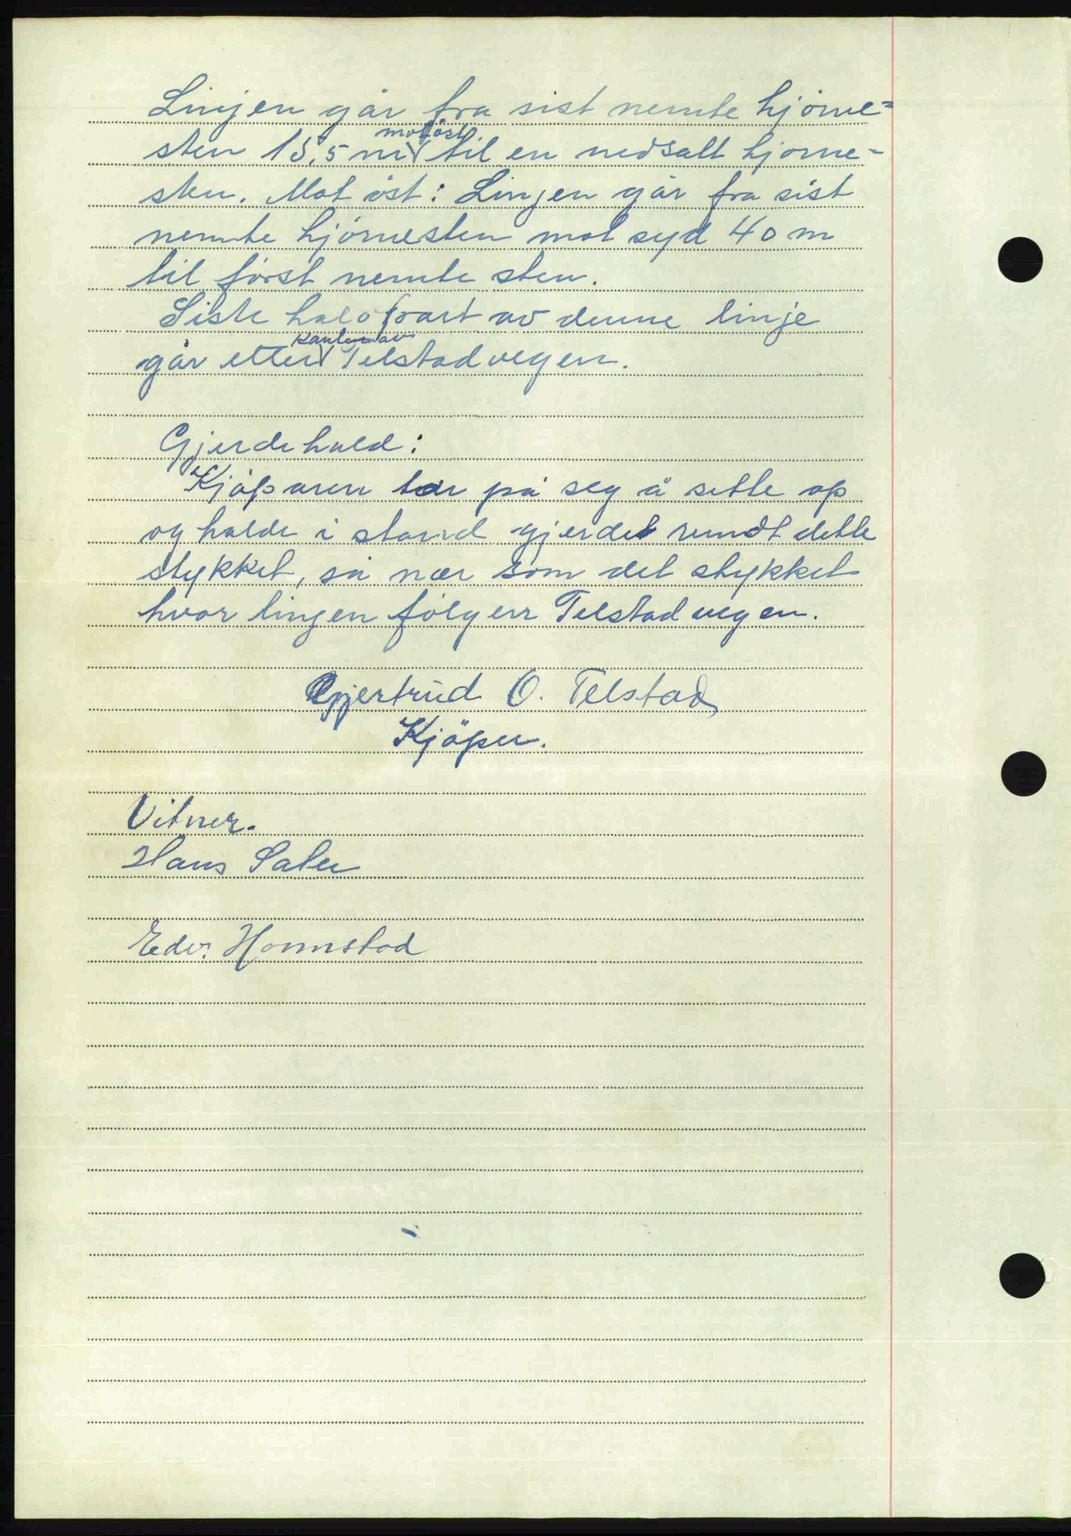 Linjen går fra sist nemte hjörne=
sten 13,5 m mot öst til en nedsatt hjorne-
sten. Mot öst: Linjen går fra sist
nemte hjörnesten mot syd 40 m
til först nemte sten.
Siste halvpart av denne linje
går etter kanten av Telstadvegen.
Gjerdehald:
Kjöparen tar på seg å sette op
og halde i stand gjerdet rundt dette
stykket, så nær som det stykket
hvor linjen fölgerr Telstadvegen.
Gjertrud O. Telstad,
Kjöper.
Vitner.
Hans Sater
Edv. Hommstad